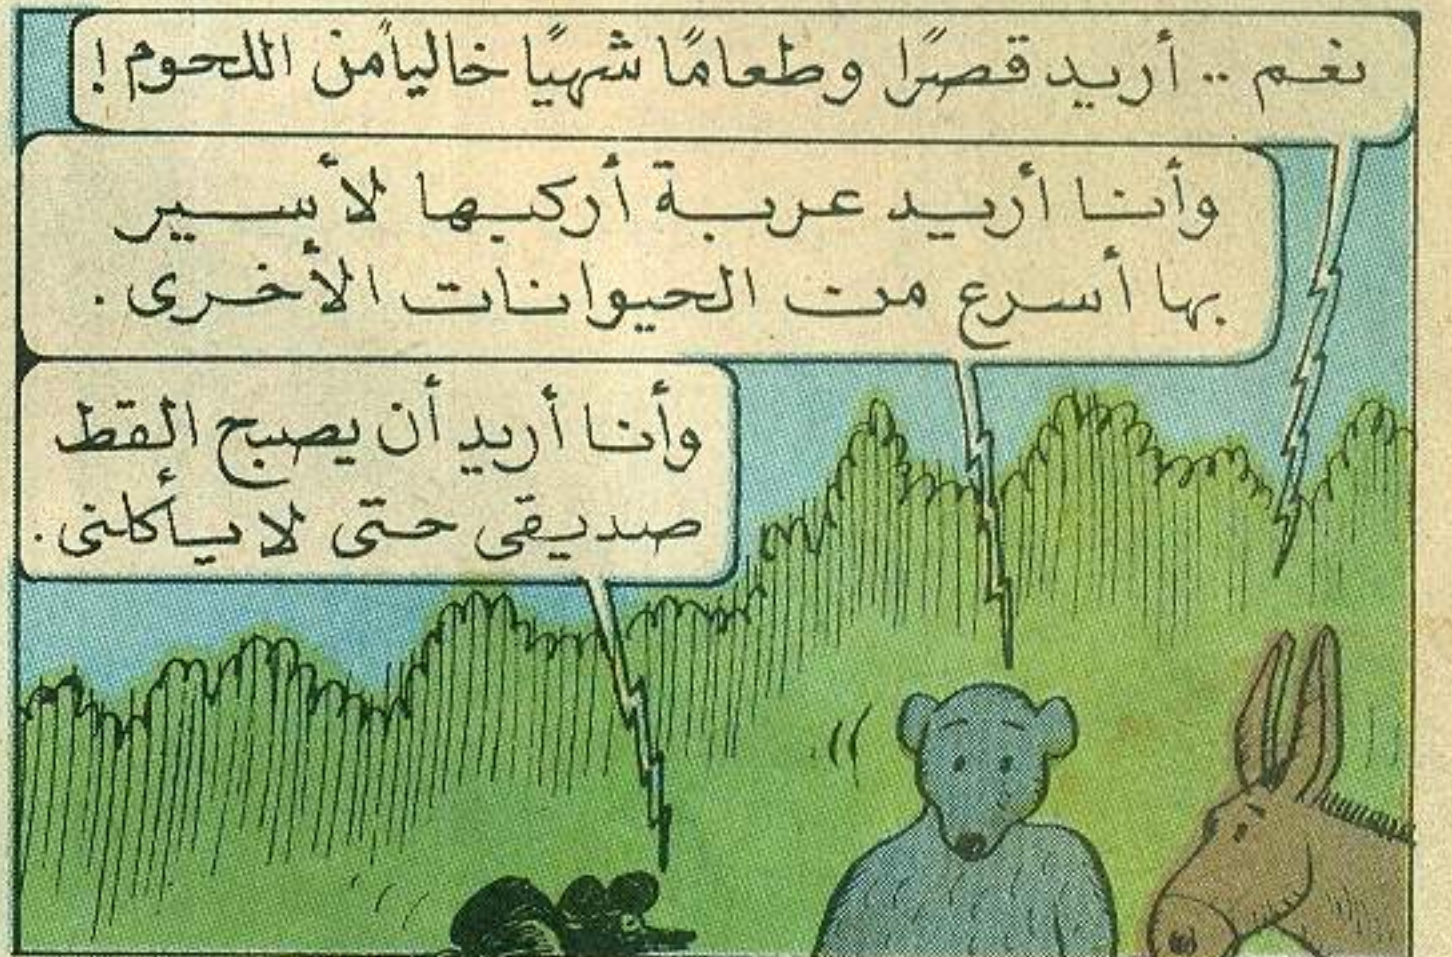 نعم .. أريد قصرًا وطعامًا شهيًا خالياً من اللحوم !
وأنا أريد عربة أركبها لأسير
بها أسرع من الحيوانات الأخرى .
وأنا أريد أن يصبح القط
صديقى حتى لا يأكلنى .